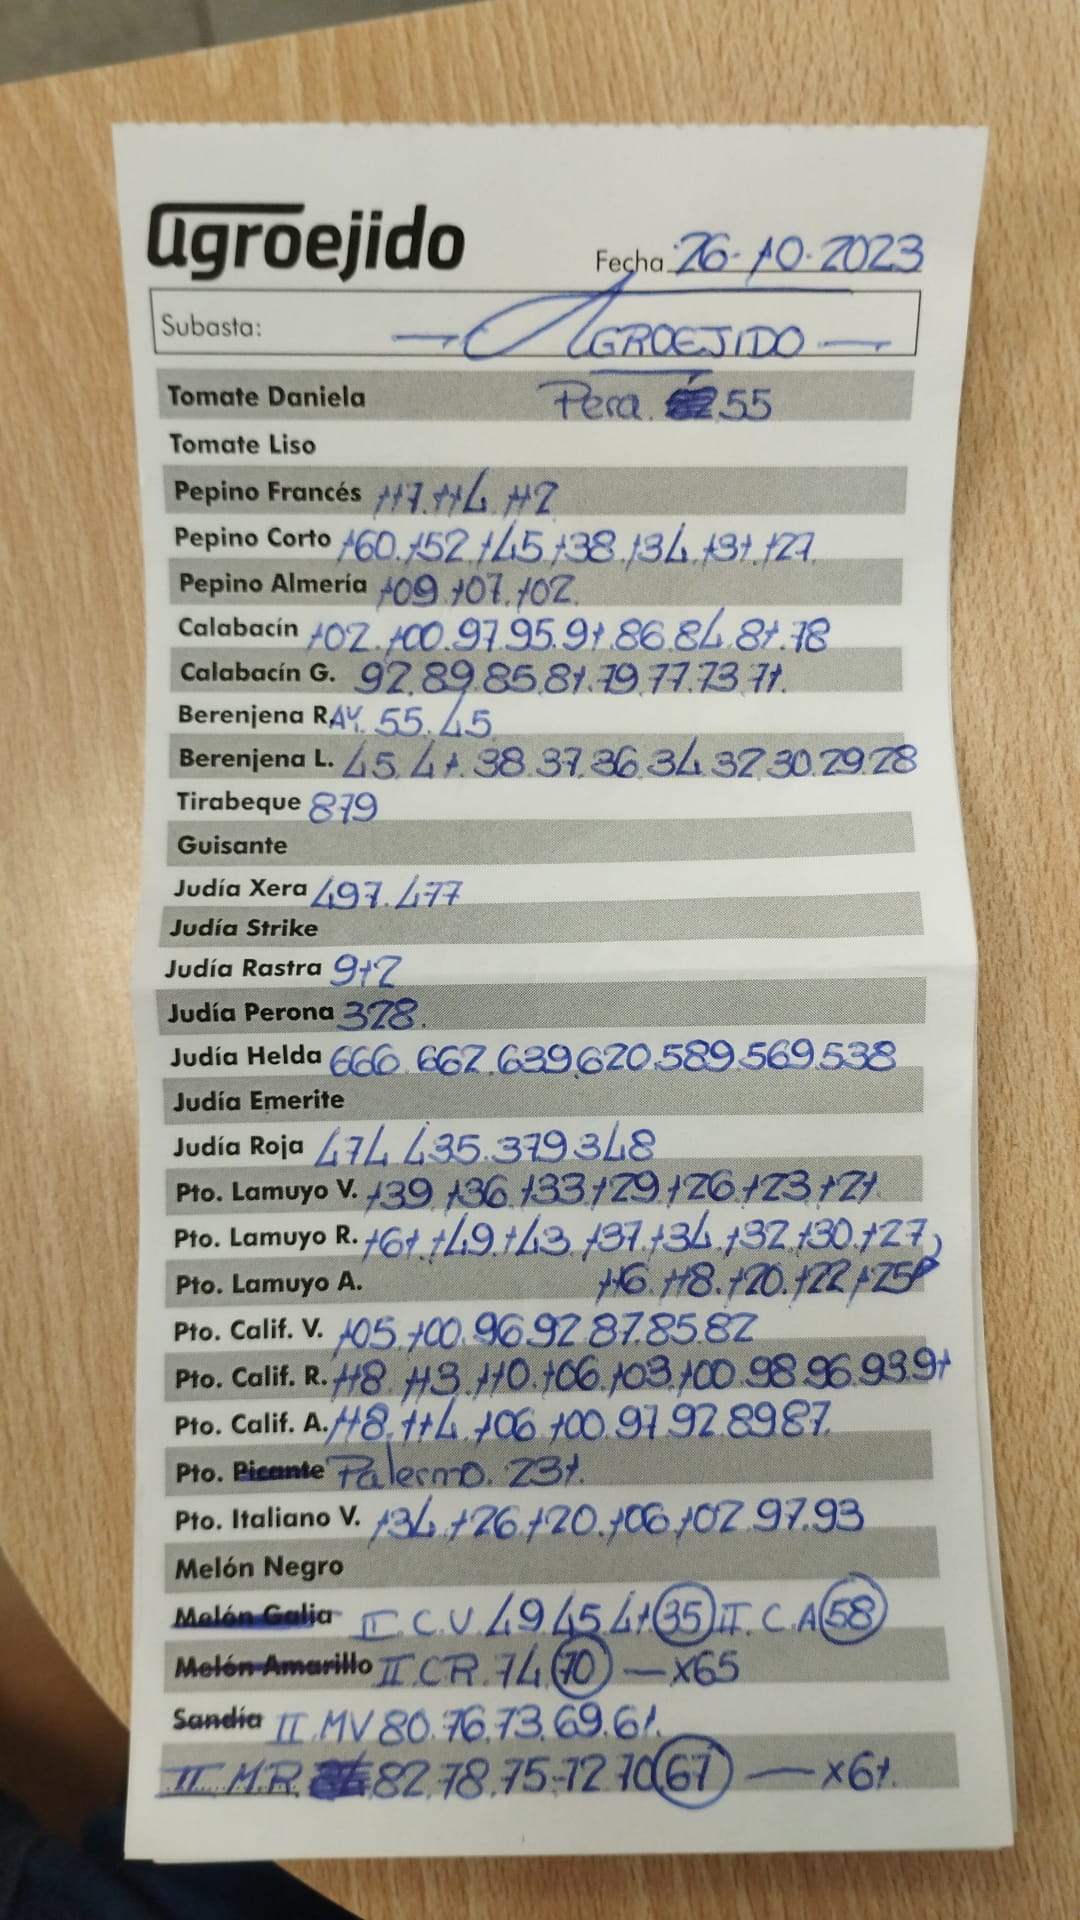 agroejido
Fecha 26-10-2023
Subasta: — AGROEJIDO —
Tomate Daniela Pera. 55
Tomate Liso
Pepino Francés 117.114.112
Pepino Corto 160.152.145.138.134.131.127
Pepino Almería 109.107.102.
Calabacín 102.100.97.95.91.86.84.81.78
Calabacín G. 92.89.85.81.79.77.73.71.
Berenjena RAY. 55.45
Berenjena L. 45.41.38.37.36.34.32.30.29.28
Tirabeque 879
Guisante
Judía Xera 497.477
Judía Strike
Judía Rastra 912
Judía Perona 328.
Judía Helda 666.662.639.620.589.569.538
Judía Emerite
Judía Roja 474.435.379.348
Pto. Lamuyo V. 139.136.133.129.126.123.121
Pto. Lamuyo R. 161.149.143.137.134.132.130.127,
Pto. Lamuyo A. 116.118.120.122.125
Pto. Calif. V. 105.100.96.92.87.85.82
Pto. Calif. R. 118.113.110.106.103.100.98.96.93.91
Pto. Calif. A. 118.114.106.100.97.92.89.87.
Pto. Picante Palermo. 231.
Pto. Italiano V. 134.126.120.106.102.97.93
Melón Negro
Melón Galia II.C.V.49.45.41.35 II.C.A 58
Melón Amarillo II.CR.74.70 — x65
Sandía II.MV 80.76.73.69.61.
II.M.R. 82.78.75.72.70.67 — x61.